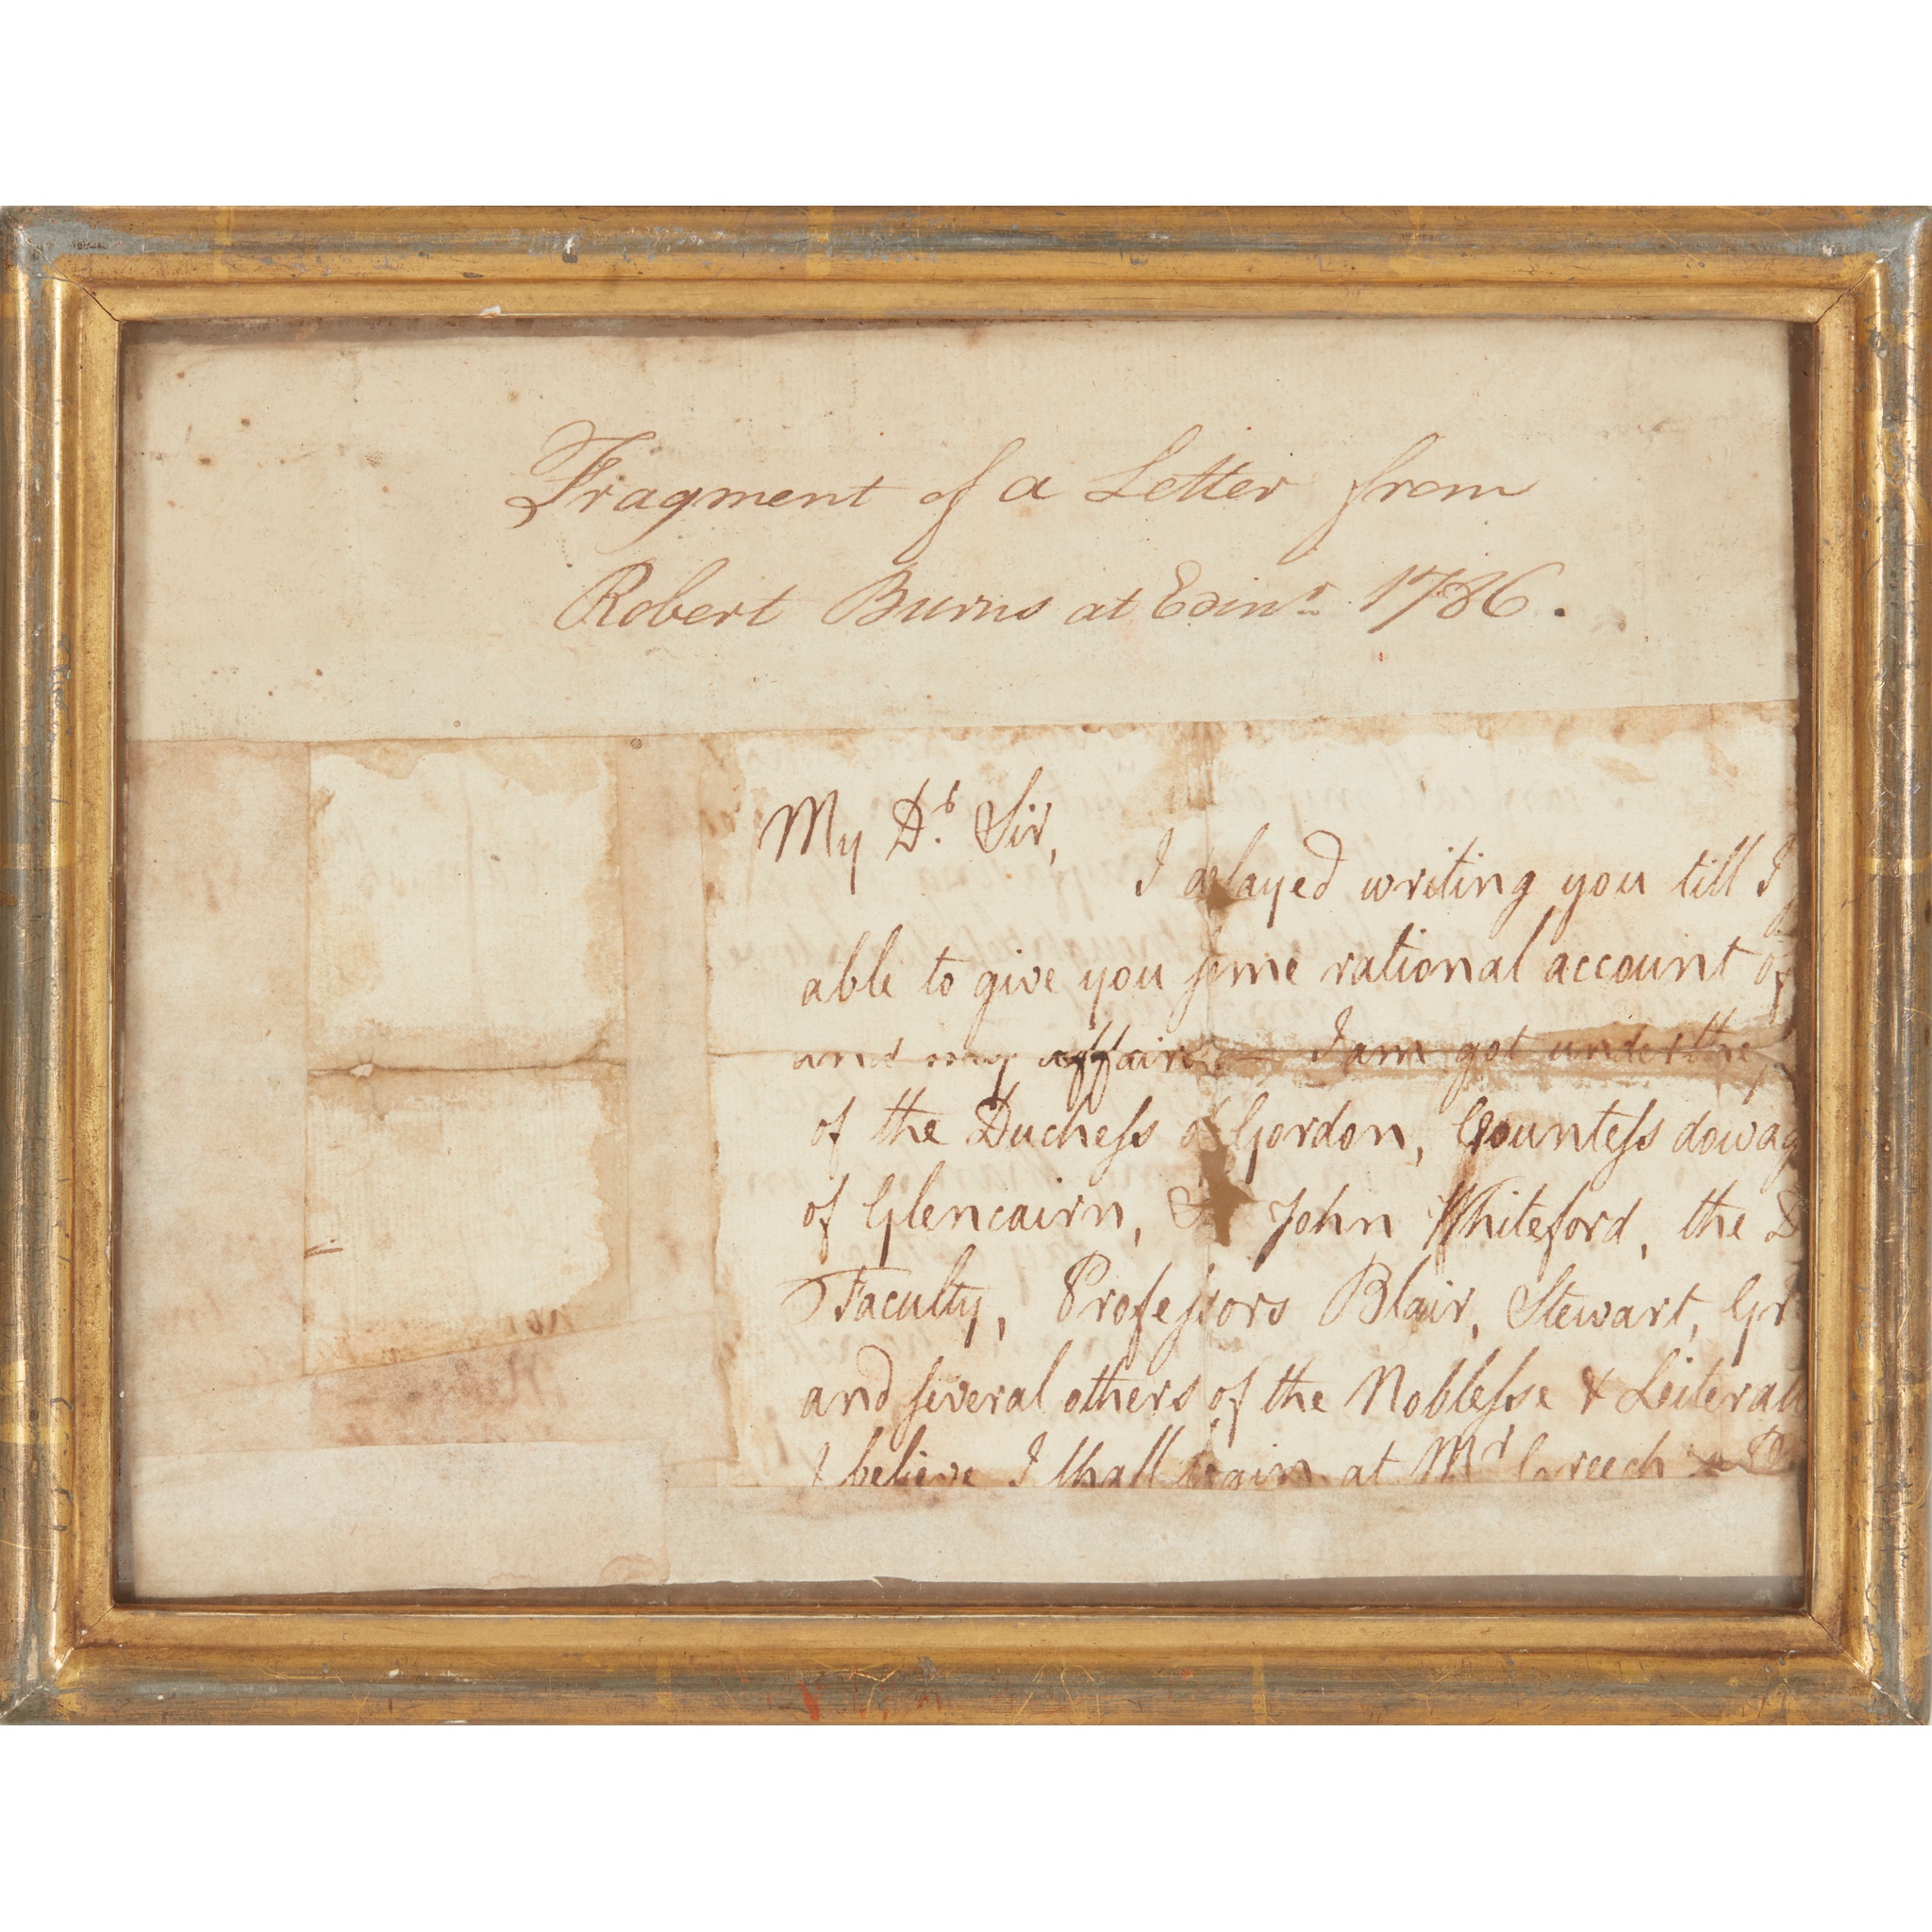 Fragment of a Letter from
Robert Burns at Edinr 1786.
My Dr. Sir,
I delayed writing you till I
able to give you some rational account of
and my affairs — I am got under the
of the Duchess of Gordon, Countess dowag
of Glencairn, Sir John Whiteford, the D
Faculty, Professors Blair, Stewart, Gr
and several others of the Noblesse & Leiterati
I believe I shall begin at Mr Creech